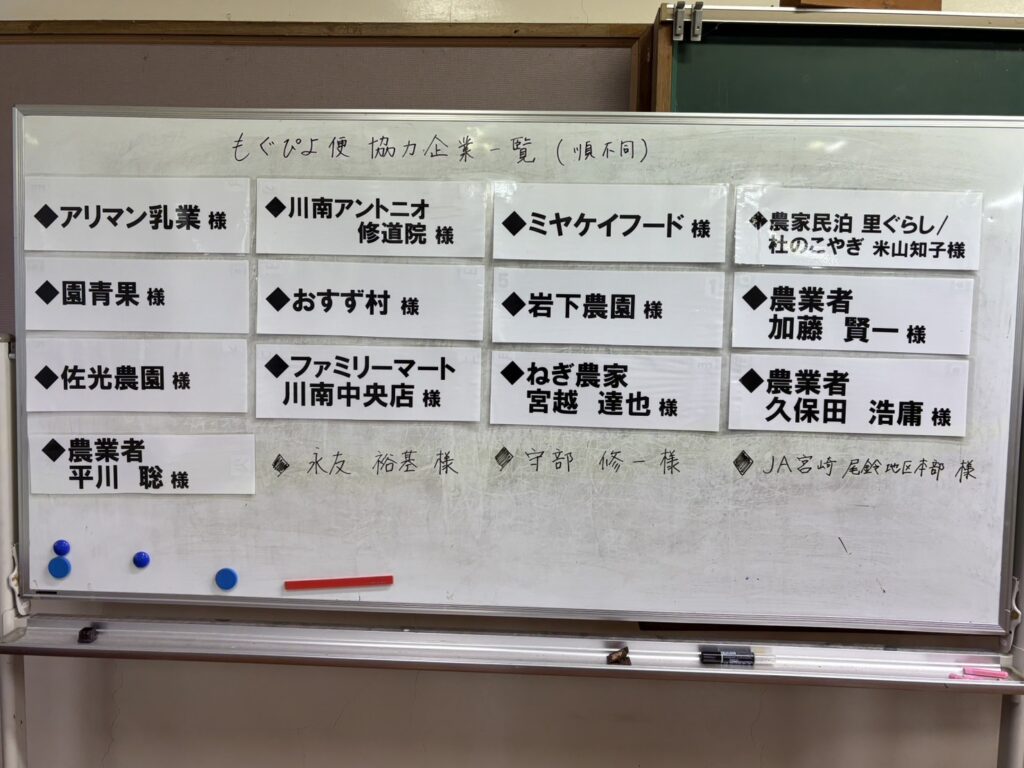 もぐぴよ便 協力企業一覧 (順不同)
◆アリマン乳業 様
◆川南アントニオ
修道院 様
◆ミヤケイフード 様
◆農家民泊 里ぐらし/
杜のこやぎ 米山知子様
◆園青果 様
◆おすず村 様
◆岩下農園 様
◆農業者
加藤 賢一 様
◆佐光農園 様
◆ファミリーマート
川南中央店 様
◆ねぎ農家
宮越 達也 様
◆農業者
久保田 浩庸 様
◆農業者
平川 聡 様
◆ 永友 裕基 様
◆ 宇部 修一 様
◆ JA宮崎 尾鈴地区本部 様